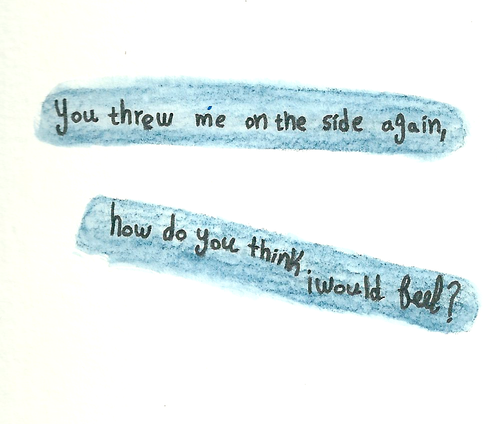 You threw me on the side again,
how do you think iwould feel?